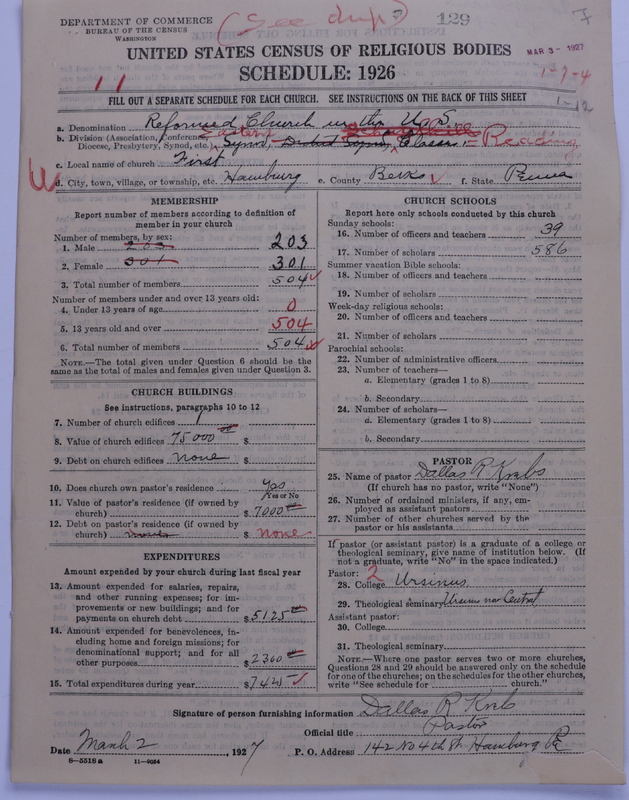 DEPARTMENT OF COMMERCE
BUREAU OF THE CENSUS
WASHINGTON
(See dup?)
129
7
UNITED STATES CENSUS OF RELIGIOUS BODIES
MAR 3 - 1927
SCHEDULE: 1926
11
1-7-4
FILL OUT A SEPARATE SCHEDULE FOR EACH CHURCH. SEE INSTRUCTIONS ON THE BACK OF THIS SHEET
1-12
a. Denomination Reformed Church in the U.S.
b. Division (Association, Conference, Eastern
Diocese, Presbytery, Synod, etc.) Synod, Classis. = Reading
c. Local name of church First
d. City, town, village, or township, etc. Hamburg e. County Berks f. State Penna
MEMBERSHIP
Report number of members according to definition of member in your church
Number of members, by sex:
1. Male 203 203
2. Female 301 301
3. Total number of members 504
Number of members under and over 13 years old:
4. Under 13 years of age 0
5. 13 years old and over 504
6. Total number of members 504
NOTE.—The total given under Question 6 should be the same as the total of males and females given under Question 3.
CHURCH BUILDINGS
See instructions, paragraphs 10 to 12
7. Number of church edifices 1
8. Value of church edifices 75000 00 $
9. Debt on church edifices none $
10. Does church own pastor's residence Yes
Yes or No
11. Value of pastor's residence (if owned by church) $ 7000 00
12. Debt on pastor's residence (if owned by church) none $ none
EXPENDITURES
Amount expended by your church during last fiscal year
13. Amount expended for salaries, repairs, and other running expenses; for improvements or new buildings; and for payments on church debt $ 5125 00
14. Amount expended for benevolences, including home and foreign missions; for denominational support; and for all other purposes $ 2300 00
15. Total expenditures during year $ 7425
CHURCH SCHOOLS
Report here only schools conducted by this church
Sunday schools:
16. Number of officers and teachers 39
17. Number of scholars 586
Summer vacation Bible schools:
18. Number of officers and teachers
19. Number of scholars
Week-day religious schools:
20. Number of officers and teachers
21. Number of scholars
Parochial schools:
22. Number of administrative officers
23. Number of teachers—
a. Elementary (grades 1 to 8)
b. Secondary
24. Number of scholars—
a. Elementary (grades 1 to 8)
b. Secondary
PASTOR
25. Name of pastor Dallas R Krebs
(If church has no pastor, write "None")
26. Number of ordained ministers, if any, employed as assistant pastors
27. Number of other churches served by the pastor or his assistants
If pastor (or assistant pastor) is a graduate of a college or theological seminary, give name of institution below. (If not a graduate, write "No" in the space indicated.)
Pastor: 2
28. College Ursinus
29. Theological seminary Ursinus now Central
Assistant pastor:
30. College
31. Theological seminary
NOTE.—Where one pastor serves two or more churches, Questions 28 and 29 should be answered only on the schedule for one of the churches; on the schedules for the other churches, write "See schedule for church."
Signature of person furnishing information Dallas R Krebs
Official title Pastor
Date March 2, 1927 P. O. Address 142 No 4th St. Hamburg Pa
8—5518a 11—9064